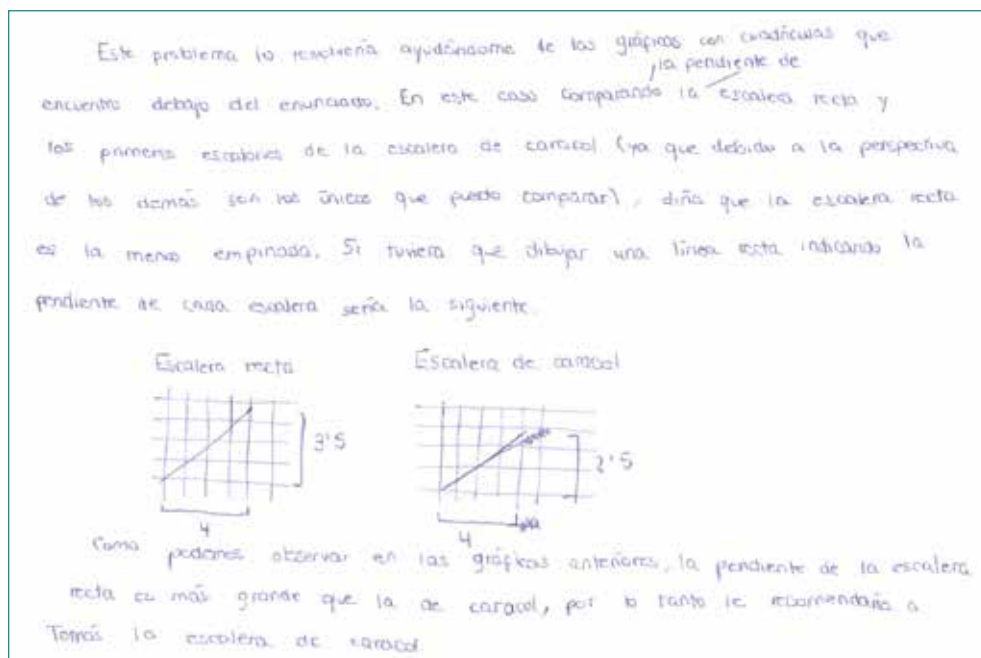 Este problema lo resolvería ayudándome de los gráficos con cuadrículas que
, la pendiente de
encuentro debajo del enunciado. En este caso comparando la escalera recta y
los primeros escalones de la escalera de caracol (ya que debido a la perspectiva
de los demás son los únicos que puedo comparar), diría que la escalera recta
es la menos empinada. Si tuviera que dibujar una línea recta indicando la
pendiente de cada escalera sería la siguiente.
Escalera recta
Escalera de caracol
3'5
2'5
4
4
Como podemos observar en las gráficas anteriores, la pendiente de la escalera
recta es más grande que la de caracol, por lo tanto le recomendaría a
Tomás la escalera de caracol